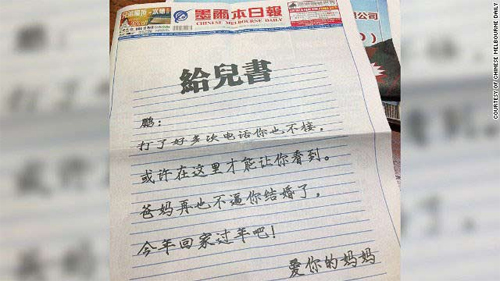 墨爾本日報
CHINESE MELBOURNE DAILY
給兒書
鵬：
打了好多次电话你也不接，
或许在这里才能让你看到。
爸妈再也不逼你结婚了，
今年回家过年吧！
爱你的妈妈
COURTESY OF CHINESE MELBOURNE DAILY